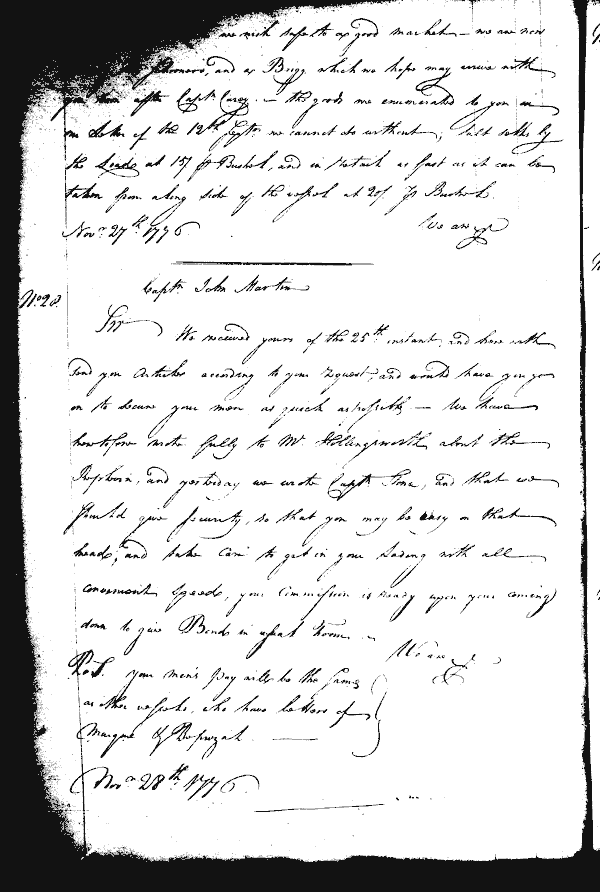 we wish safe to a good market - we are now
Prisoners, and a Brigg which we hope may arrive with
you soon after Capt. Carey. - the goods we enumerated to you in
our Letter of the 12th Septr. we cannot do without, Salt sells by
the Load at 15/ p Bushel, and in retail as fast as it can be
taken from along side of the vessel at 20/ p Bushel.
Novr. 27th 1776 We are &
No 28. Captn. John Martin
Sir
We received yours of the 25th instant, and here with
Send you Articles according to your request, and would have you go
on to secure your men as quick as possible - We have
heretofore wrote fully to Mr. Hollingsworth about the
, and yesterday we wrote Captn. Stone, and that we
should give security, so that you may be easy on that
head, and take care to get in your Lading with all
convenient speed, your Commission is ready upon your coming
down to give Bonds in usual form.
We are &
P.S. your men's pay will be the same
as other vessels, who have Letters of
Marque & Reprizal.
Novr. 28th 1776